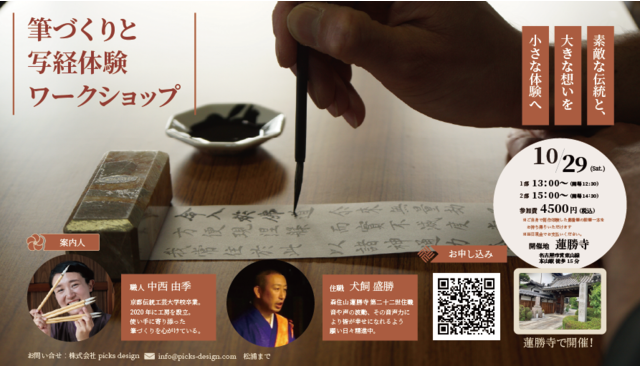 筆づくりと
写経体験
ワークショップ
素敵な伝統と、
大きな想いを
小さな体験へ
10/29(Sat.)
1部 13:00〜(開場12:30)
2部 15:00〜(開場14:30)
参加費 4500円(税込)
開催地 蓮勝寺
名古屋市営東山線
本山駅 徒歩15分
案内人
職人 中西 由季
京都伝統工芸大学校卒業。
2020年に工房を設立。
使い手に寄り添った
筆づくりを心がけている。
住職 犬飼 盛勝
森住山 蓮勝寺 第二十二世住職
音や声の波動、その音声力に
より皆が幸せになれるよう
願い日々精進中。
お申し込み
蓮勝寺で開催!
お問い合せ:株式会社 picks design
info@picks-design.com 松浦まで